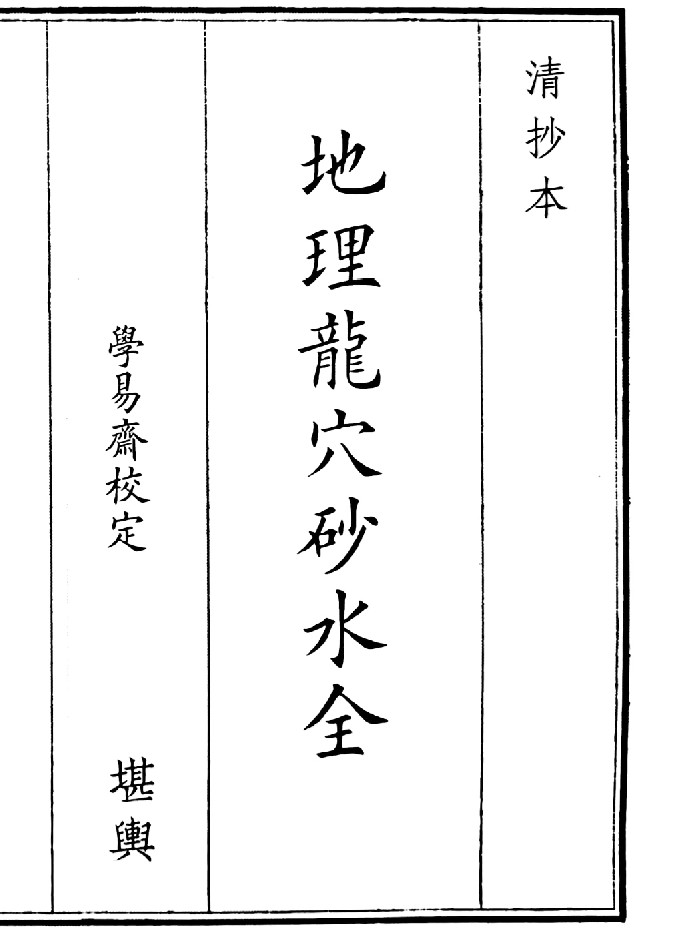 清抄本
地理龍穴砂水全
學易齋校定
堪輿